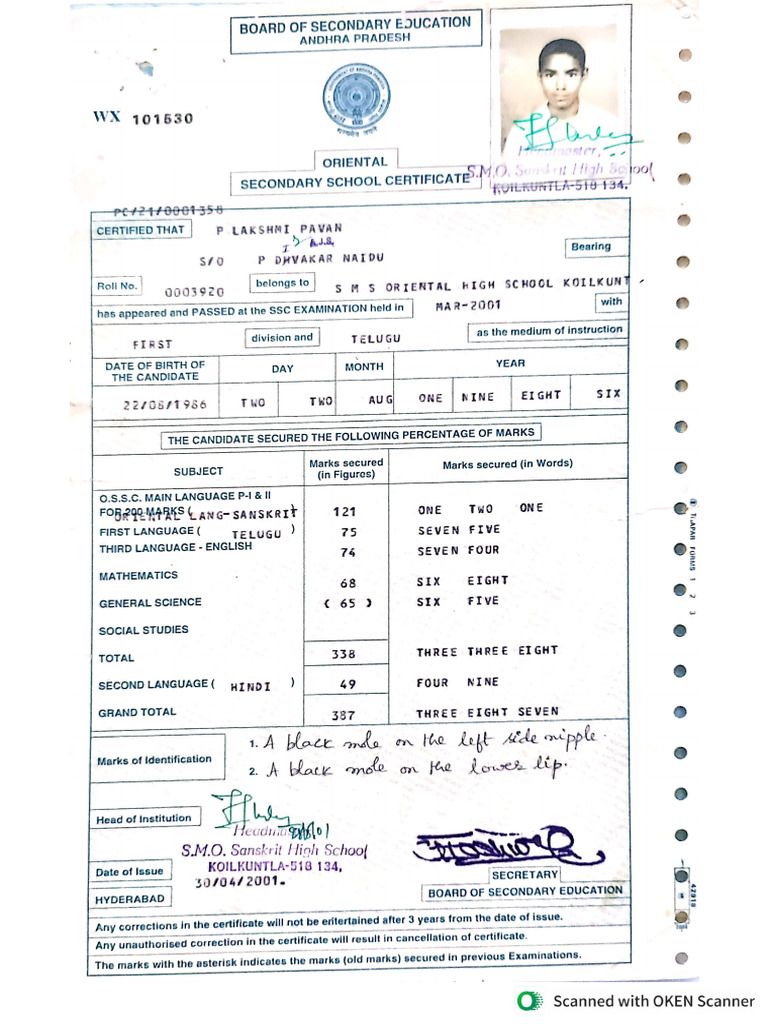 BOARD OF SECONDARY EDUCATION
ANDHRA PRADESH
WX 101530
ORIENTAL
SECONDARY SCHOOL CERTIFICATE
Headmaster,
S.M.O. Sanskrit High School
KOILKUNTLA-518 134.
PC/21/0001358
CERTIFIED THAT P LAKSHMI PAVAN
S/O P DHVAKAR NAIDU
Bearing
Roll No. 0003920 belongs to S M S ORIENTAL HIGH SCHOOL KOILKUNT
has appeared and PASSED at the SSC EXAMINATION held in MAR-2001 with
FIRST division and TELUGU as the medium of instruction
DATE OF BIRTH OF THE CANDIDATE DAY MONTH YEAR
22/08/1986 TWO TWO AUG ONE NINE EIGHT SIX
THE CANDIDATE SECURED THE FOLLOWING PERCENTAGE OF MARKS
SUBJECT Marks secured (in Figures) Marks secured (in Words)
O.S.S.C. MAIN LANGUAGE P-I & II
FOR 200 MARKS ( ORIENTAL LANG-SANSKRIT ) 121 ONE TWO ONE
FIRST LANGUAGE ( TELUGU ) 75 SEVEN FIVE
THIRD LANGUAGE - ENGLISH 74 SEVEN FOUR
MATHEMATICS 68 SIX EIGHT
GENERAL SCIENCE ( 65 ) SIX FIVE
SOCIAL STUDIES
TOTAL 338 THREE THREE EIGHT
SECOND LANGUAGE ( HINDI ) 49 FOUR NINE
GRAND TOTAL 387 THREE EIGHT SEVEN
Marks of Identification
1. A black mole on the left side nipple.
2. A black mole on the lower lip.
Head of Institution
S.M.O. Sanskrit High School
KOILKUNTLA-518 134,
Date of Issue 30/04/2001.
HYDERABAD
SECRETARY
BOARD OF SECONDARY EDUCATION
Any corrections in the certificate will not be eritertained after 3 years from the date of issue.
Any unauthorised correction in the certificate will result in cancellation of certificate.
The marks with the asterisk indicates the marks (old marks) secured in previous Examinations.
42918
Scanned with OKEN Scanner